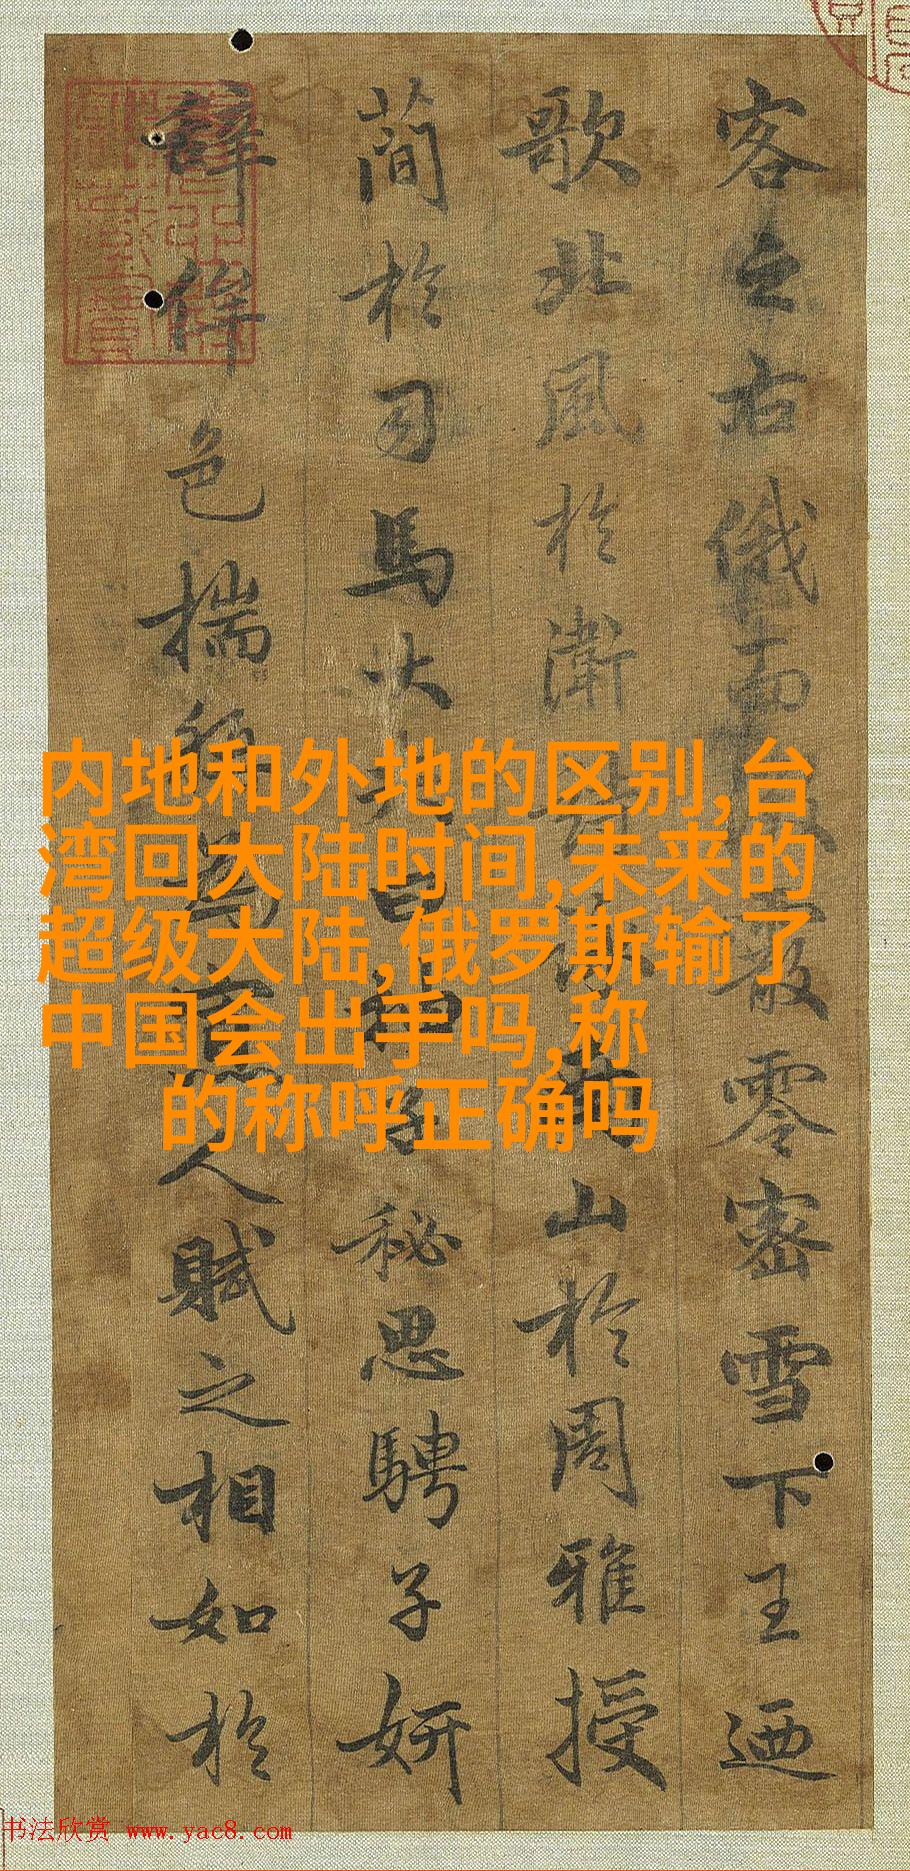 客之右俄而微霰零密雪下王迺
歌北風於衛詩詠南山於周雅授
簡於司馬大夫曰抽子秘思騁子妍
辭侔色揣稱為寡人賦之相如於
内地和外地的区别,台
湾回大陆时间,未来的
超级大陆,俄罗斯输了
中国会出手吗,称
的称呼正确吗
书法欣赏 www.yac8.com